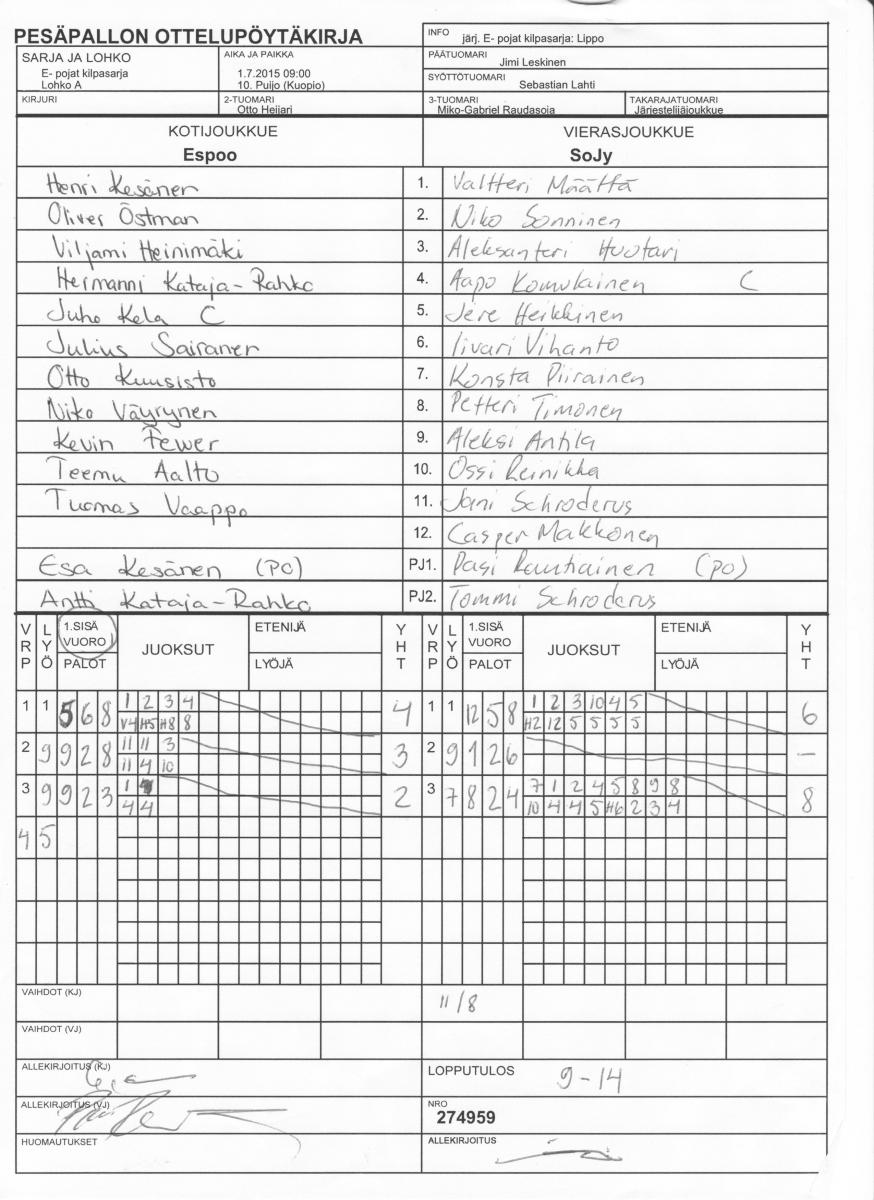 PESÄPALLON OTTELUPÖYTÄKIRJA
INFO järj. E- pojat kilpasarja: Lippo
SARJA JA LOHKO
E- pojat kilpasarja
Lohko A
AIKA JA PAIKKA
1.7.2015 09:00
10. Puijo (Kuopio)
PÄÄTUOMARI
Jimi Leskinen
SYÖTTÖTUOMARI
Sebastian Lahti
KIRJURI
2-TUOMARI
Otto Heijari
3-TUOMARI
Miko-Gabriel Raudasoja
TAKARAJATUOMARI
Järjestelijäjoukkue
KOTIJOUKKUE VIERASJOUKKUE
Espoo SoJy
Henri Kesänen 1. Valtteri Määttä
Oliver Östman 2. Niko Sonninen
Viljami Heinimäki 3. Aleksanteri Huotari
Hermanni Kataja-Rahko 4. Aapo Komulainen C
Juho Kela C 5. Jere Heikkinen
Julius Sairanen 6. Iivari Vihanto
Otto Kuusisto 7. Konsta Piirainen
Niko Väyrynen 8. Petteri Timonen
Kevin Fewer 9. Aleksi Antila
Teemu Aalto 10. Ossi Reinikka
Tuomas Vaappo 11. Jani Schroderus
12. Casper Makkonen
Esa Kesänen (PO) PJ1. Pasi Rautiainen (PO)
Antti Kataja-Rahko PJ2. Tommi Schroderus
VRP LYÖ 1.SISÄ VUORO PALOT JUOKSUT ETENIJÄ LYÖJÄ YHT VRP LYÖ 1.SISÄ VUORO PALOT JUOKSUT ETENIJÄ LYÖJÄ YHT
1 1 5 6 8 1 2 3 4 4 1 1 12 5 8 1 2 3 10 4 5 6
V4 H5 H8 8 H2 12 5 5 5 5
2 9 9 2 8 11 11 3 3 2 9 1 2 6 -
11 4 10
3 9 9 2 3 1 2 3 7 8 2 4 7 1 2 4 5 8 9 8 8
4 4 10 4 4 5 H6 2 3 4
4 5
VAIHDOT (KJ) 11/8
VAIHDOT (VJ)
ALLEKIRJOITUS (KJ) LOPPUTULOS 9-14
ALLEKIRJOITUS (VJ) NRO
274959
HUOMAUTUKSET ALLEKIRJOITUS